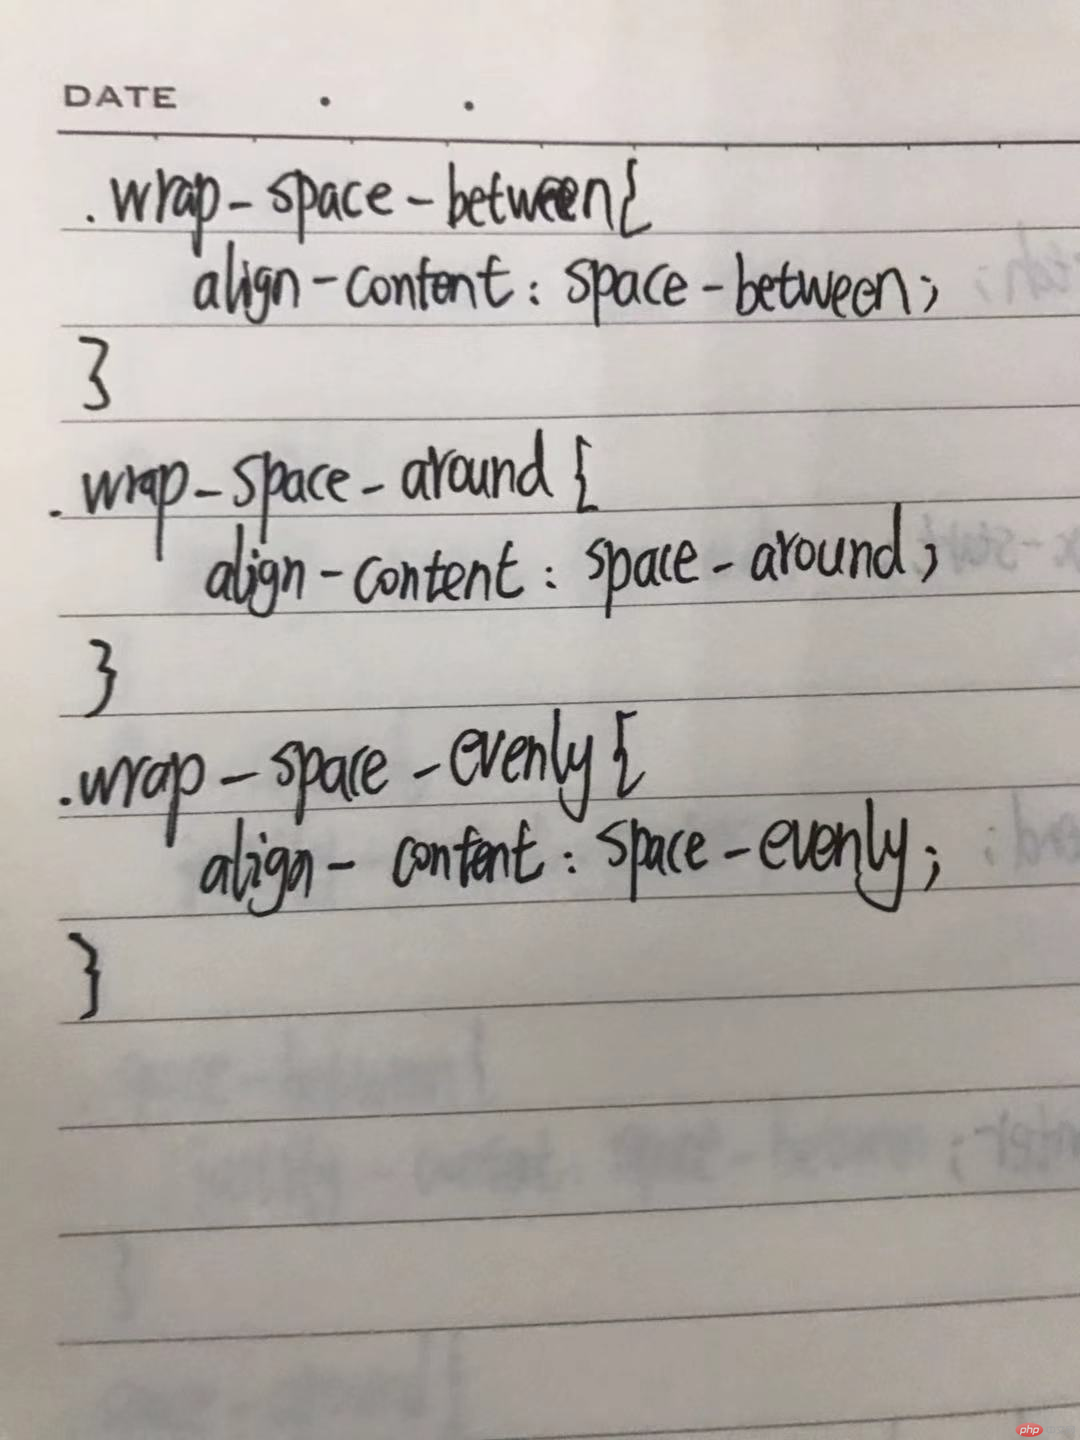 DATE
.wrap-space-between{
align-content: space-between;
}
.wrap-space-around {
align-content: space-around;
}
.wrap-space-evenly {
align-content: space-evenly;
}
php